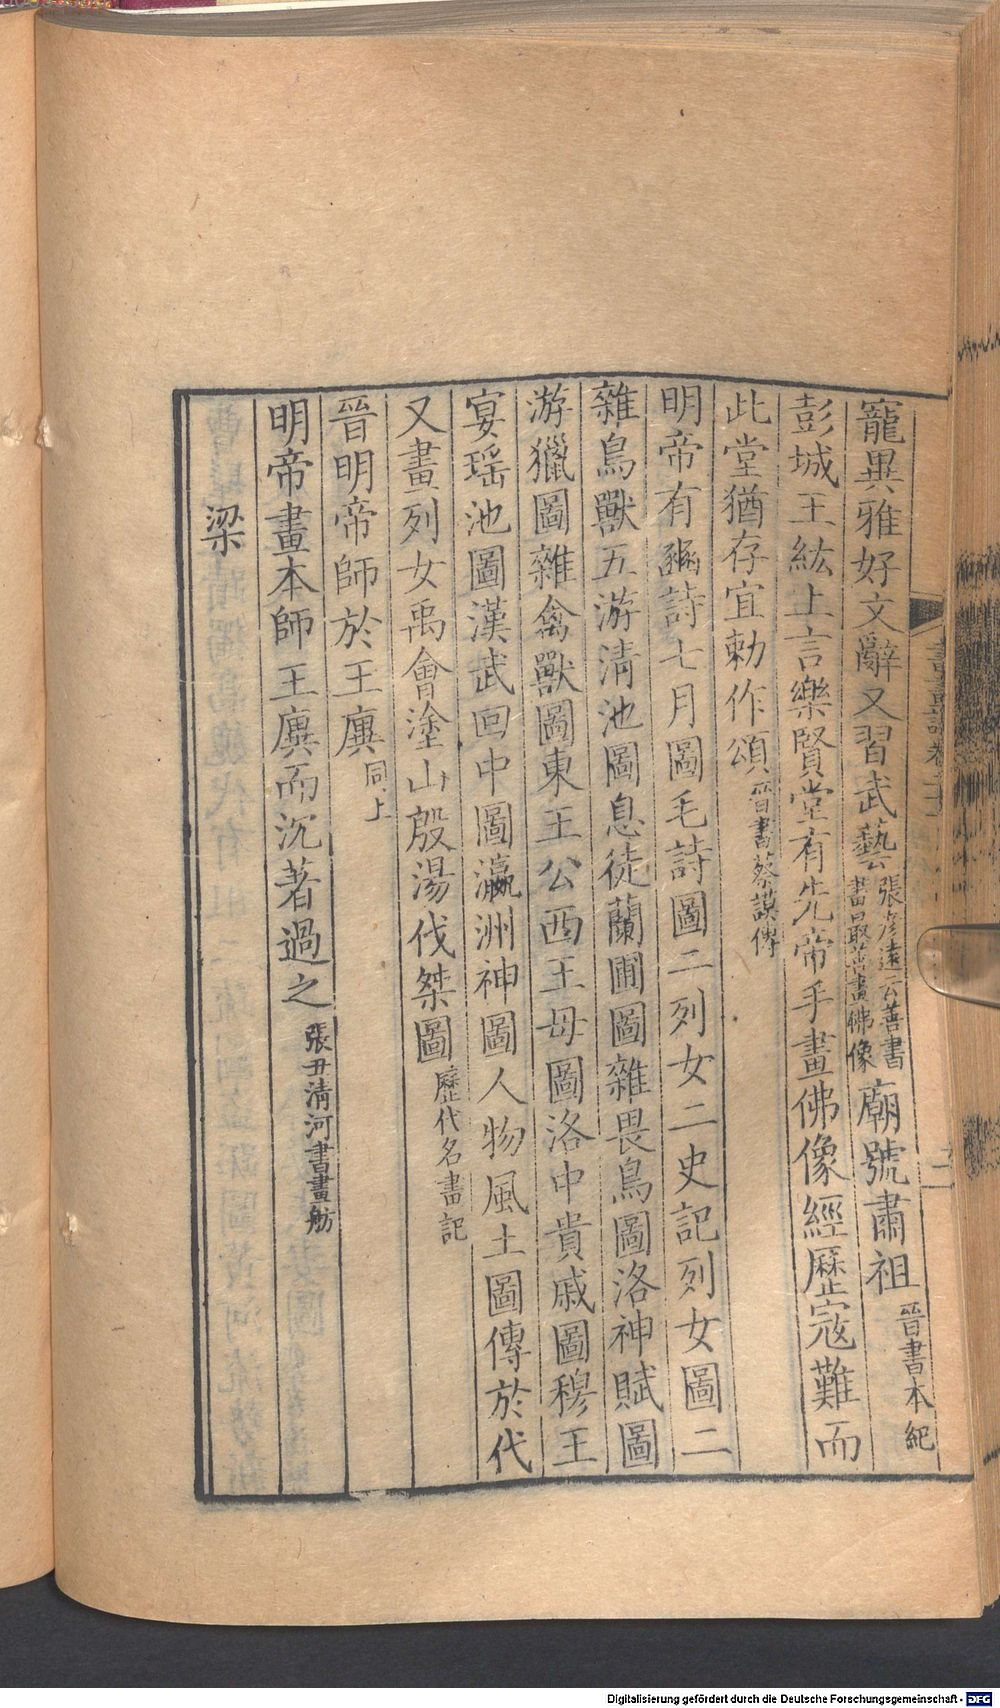 寵異雅好文辭又習武藝張彥遠云善書畫最善畫佛像廟號肅祖晉書本紀
彭城王紘上言樂賢堂有先帝手畫佛像經歷寇難而
此堂猶存宜勅作頌晉書蔡謨傳
明帝有豳詩七月圖毛詩圖二列女二史記列女圖二
雜鳥獸五游清池圖息徒蘭圃圖雜畏鳥圖洛神賦圖
游獵圖雜禽獸圖東王公西王母圖洛中貴戚圖穆王
宴瑤池圖漢武回中圖瀛洲神圖人物風土圖傳於代
又畫列女禹會塗山殷湯伐桀圖歷代名畫記
晉明帝師於王廙同上
明帝畫本師王廙而沉著過之張丑清河書畫舫
梁
Digitalisierung gefördert durch die Deutsche Forschungsgemeinschaft - DFG